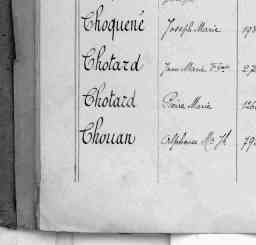 Choquené Joseph Marie
Chotard Jean Marie Fçois
Chotard Pierre Marie
Chouan Alphonse Mie Jh